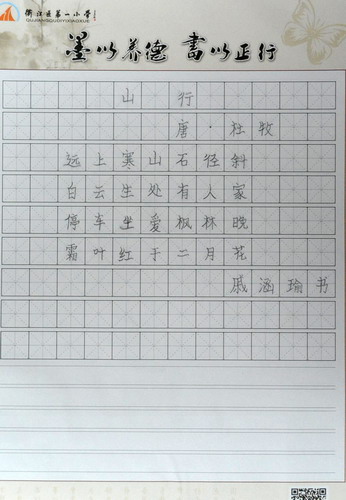 衢江区第一小学
QUJIANGQUDIYIXIAOXUE
墨以养德 書以正行
山行
唐·杜牧
远上寒山石径斜
白云生处有人家
停车坐爱枫林晚
霜叶红于二月花
戚涵瑜书